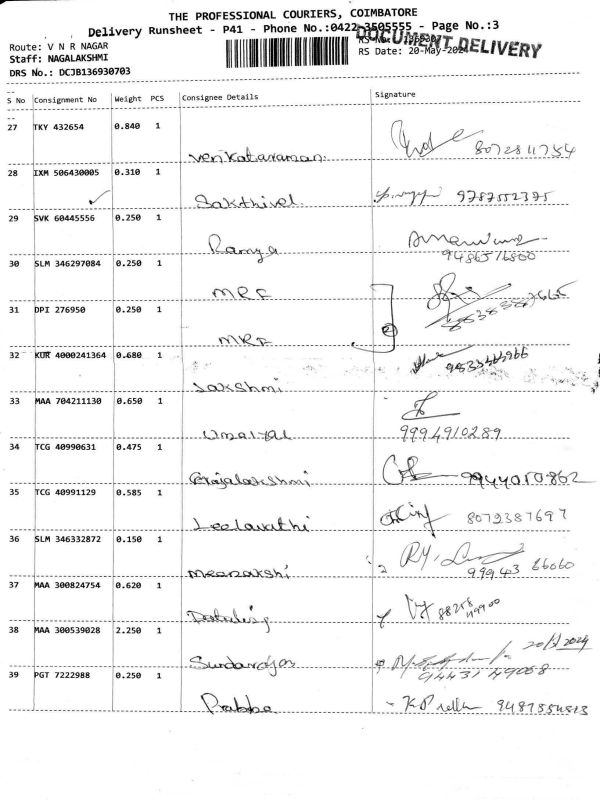 THE PROFESSIONAL COURIERS, COIMBATORE
Delivery Runsheet - P41 - Phone No.:0422-3505555 - Page No.:3
Route: V N R NAGAR
DOCUMENT DELIVERY
Staff: NAGALAKSHMI
RS Date: 20-May-2024
DRS No.: DCJB136930703
S No Consignment No Weight PCS Consignee Details Signature
27 TKY 432654 0.840 1
Venkataraman 8072811754
28 IXM 506430005 0.310 1
Sakthivel 9787552375
29 SVK 60445556 0.250 1
Ramya 9486516800
30 SLM 346297084 0.250 1
MRF
31 DPI 276950 0.250 1
MRF
32 KUR 4000241364 0.680 1
Lakshmi
33 MAA 704211130 0.650 1
Umaiyal 9994910289
34 TCG 40990631 0.475 1
Gajalakshmi 9944050862
35 TCG 40991129 0.585 1
Leelavathi 8072387697
36 SLM 346332872 0.150 1
Meenakshi 99943 66060
37 MAA 300824754 0.620 1
38 MAA 300539028 2.250 1
20/5/2024
Sundarajan 94431 49068
39 PGT 7222988 0.250 1
Prabha 9487554813